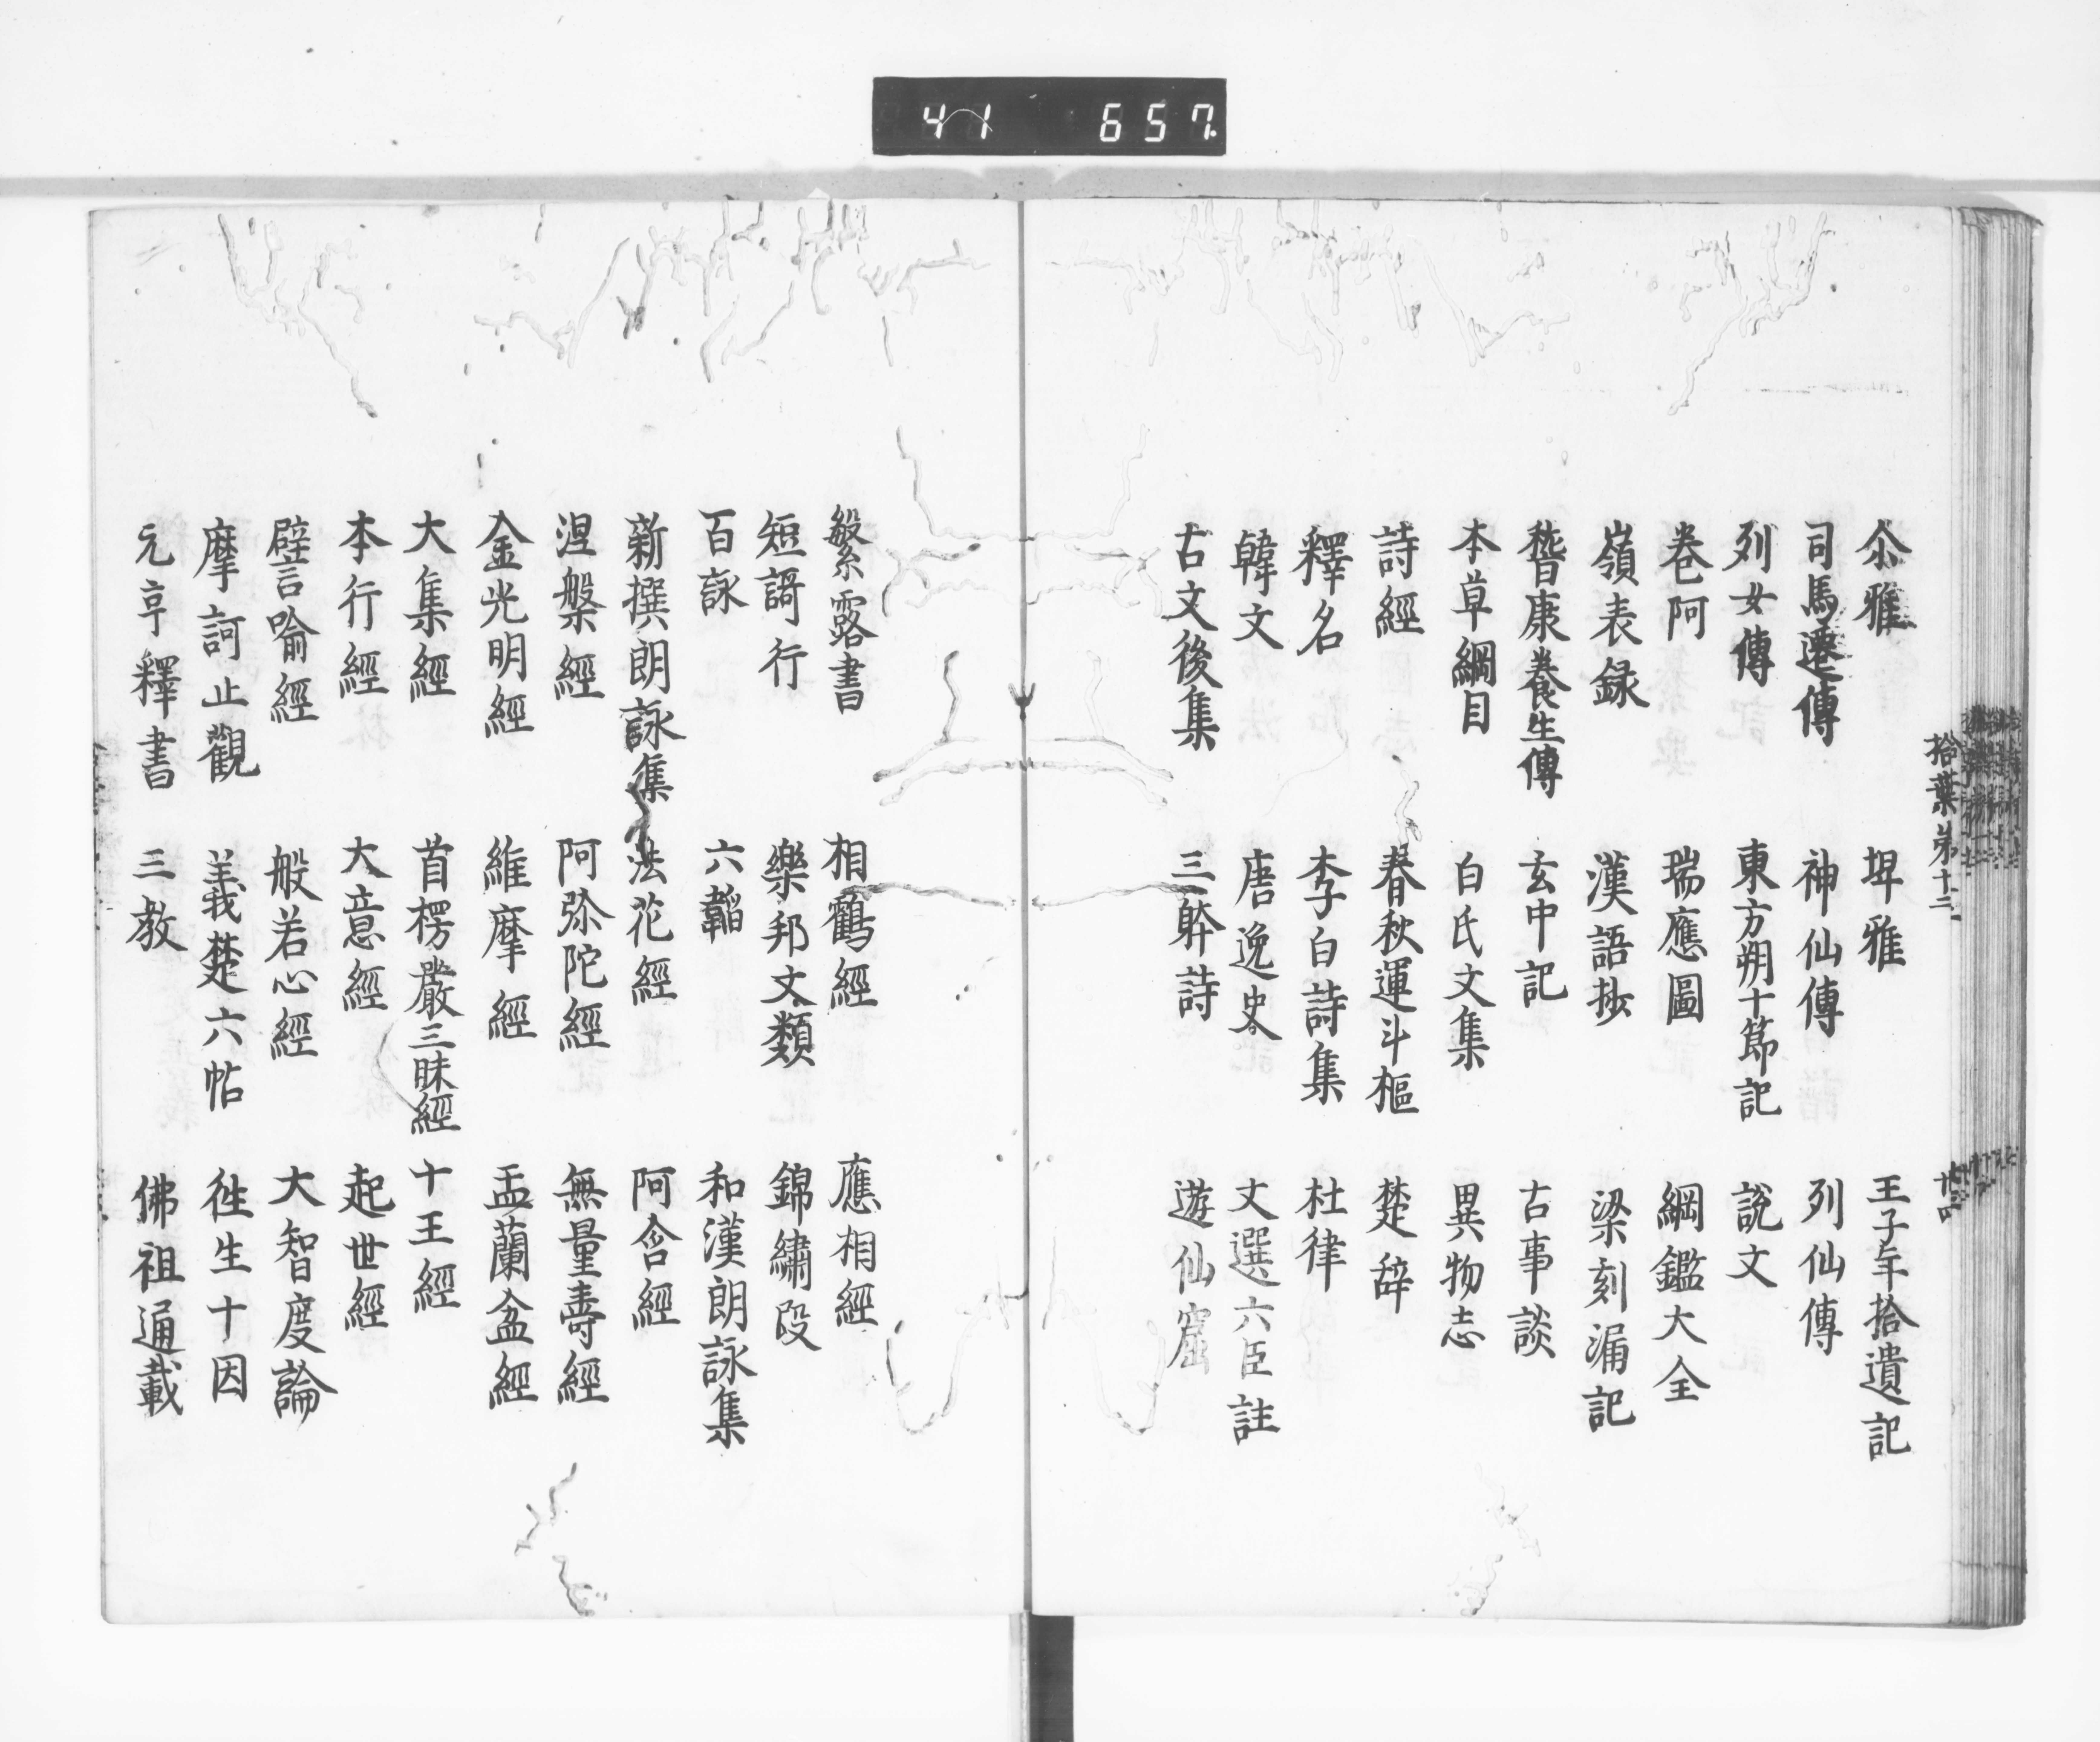 41 657
尒雅 埤雅 王子年拾遺記
司馬遷傳 神仙傳 列仙傳
列女傳 東方朔十節記 説文
巻阿 瑞應圖 綱鑑大全
嶺表録 漢語抄 梁刻漏記
嵆康養生傳 玄中記 古事談
本草綱目 白氏文集 異物志
詩經 春秋運斗樞 楚辞
釋名 李白詩集 杜律
韓文 唐逸史 文選六臣註
古文後集 三躰詩 遊仙窟
拾葉第十二
十四
繁露書 相鶴經 應相經
短謌行 樂邦文類 錦繡段
百詠 六韜 和漢朗詠集
新撰朗詠集 法花經 阿含經
涅槃經 阿弥陀經 無量壽經
金光明經 維摩經 盂蘭盆經
大集經 首楞嚴三昧經 十王經
本行經 大意經 起世經
譬喻經 般若心經 大智度論
摩訶止觀 義楚六帖 徃生十因
元亨釋書 三教 佛祖通載